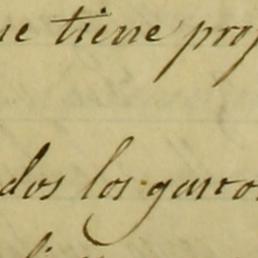 ue tiene prop
dos los garro